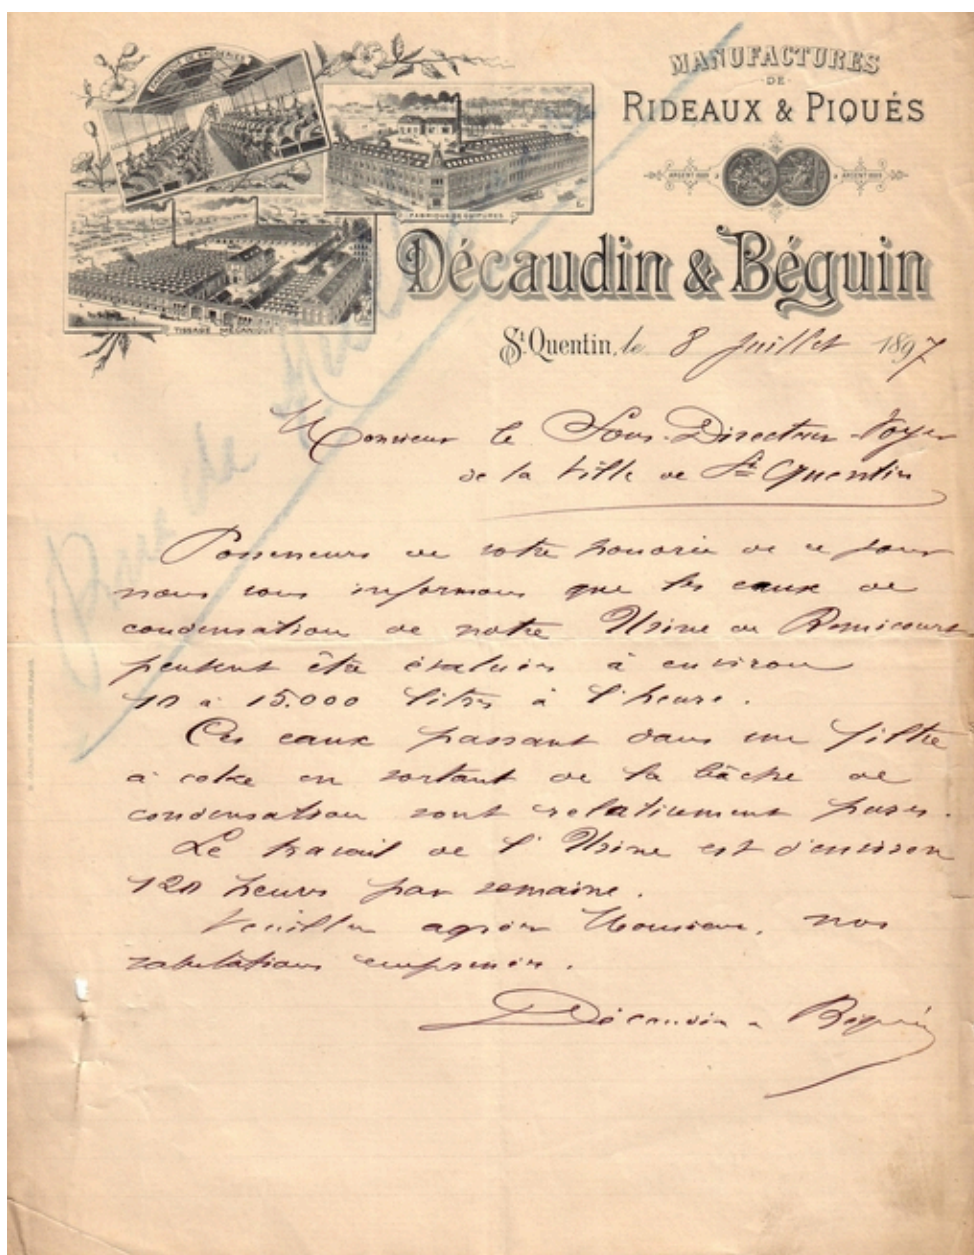 FABRIQUE DE BRODERIES
FABRIQUE DE GUIPURES
TISSAGE MÉCANIQUE
MANUFACTURES
DE
RIDEAUX & PIQUÉS
ARGENT 1889 ARGENT 1889
Décaudin & Béguin
St Quentin, le 8 Juillet 1897
Monsieur le Sous-Directeur Voyer
de la Ville de St Quentin
Possesseurs de votre honorée de ce jour
nous vous informons que les eaux de
condensation de notre Usine de Remicourt
peuvent être évaluées à environ
10 à 15.000 litres à l'heure.
Ces eaux passant dans un filtre
à coke en sortant de la bâche de
condensation sont relativement pures.
Le travail de l'Usine est d'environ
120 heures par semaine.
Veuillez agréer Monsieur, nos
salutations empressées.
Décaudin & Béguin
Rue de